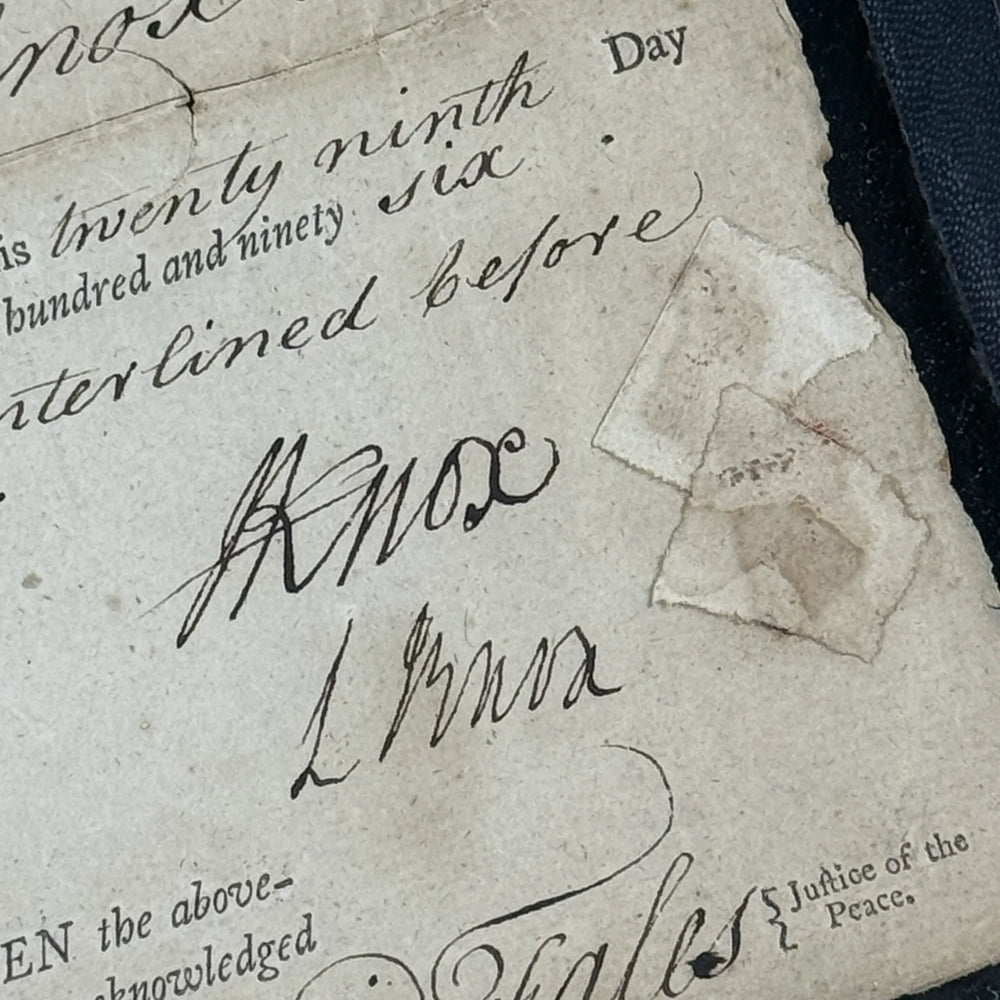 nox
Day
is twenty ninth
hundred and ninety six.
nterlined before
HKnox
L Knox
EN the above-
cknowledged
Fales
Juſtice of the
Peace.